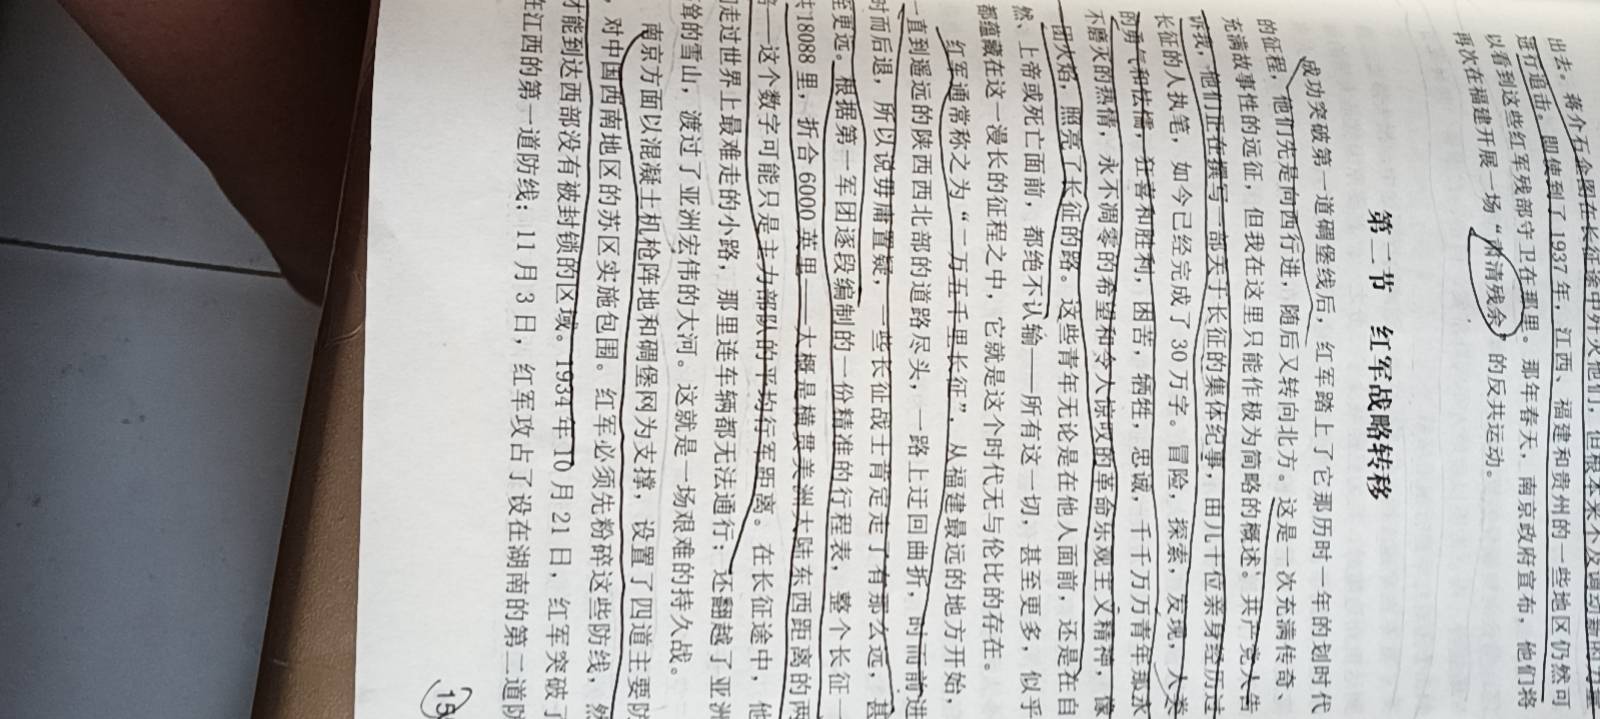 出去。蒋介石企图在长征途中歼灭他们，但根本来不及调动新的力量
进行追击。即使到了1937年，江西、福建和贵州的一些地区仍然可
以看到这些红军残部守卫在那里。那年春天，南京政府宣布，他们将
再次在福建开展一场“肃清残余”的反共运动。
第二节 红军战略转移
成功突破第一道碉堡线后，红军踏上了它那历时一年的划时代
的征程，他们先是向西行进，随后又转向北方。这是一次充满传奇、
充满故事性的远征，但我在这里只能作极为简略的概述。共产党人告
诉我，他们正在撰写一部关于长征的集体纪事，由几十位亲身经历过
长征的人执笔，如今已经完成了30万字。冒险，探索，发现，人类
的勇气和怯懦，狂喜和胜利，困苦，牺牲，忠诚，千千万万青年那永
不磨灭的热情，永不凋零的希望和令人惊叹的革命乐观主义精神，像
一团火焰，照亮了长征的路。这些青年无论是在他人面前，还是在自
然、上帝或死亡面前，都绝不认输——所有这一切，甚至更多，似乎
都蕴藏在这一漫长的征程之中，它就是这个时代无与伦比的存在。
红军通常称之为“一万五千里长征”，从福建最远的地方开始，
一直到遥远的陕西西北部的道路尽头，一路上迂回曲折，时而前进
时而后退，所以说毋庸置疑，一些长征战士肯定走了有那么远，甚
至更远。根据第一军团逐段编制的一份精准的行程表，整个长征一
共18088里，折合6000英里——大概是横贯美洲大陆东西距离的两
倍——这个数字可能只是主力部队的平均行军距离。在长征途中，他
们走过世界上最难走的小路，那里连车辆都无法通行；还翻越了亚洲
耸的雪山，渡过了亚洲宏伟的大河。这就是一场艰难的持久战。
南京方面以混凝土机枪阵地和碉堡网为支撑，设置了四道主要防
，对中国西南地区的苏区实施包围。红军必须先粉碎这些防线，然
才能到达西部没有被封锁的区域。1934年10月21日，红军突破了
在江西的第一道防线；11月3日，红军攻占了设在湖南的第二道防
15